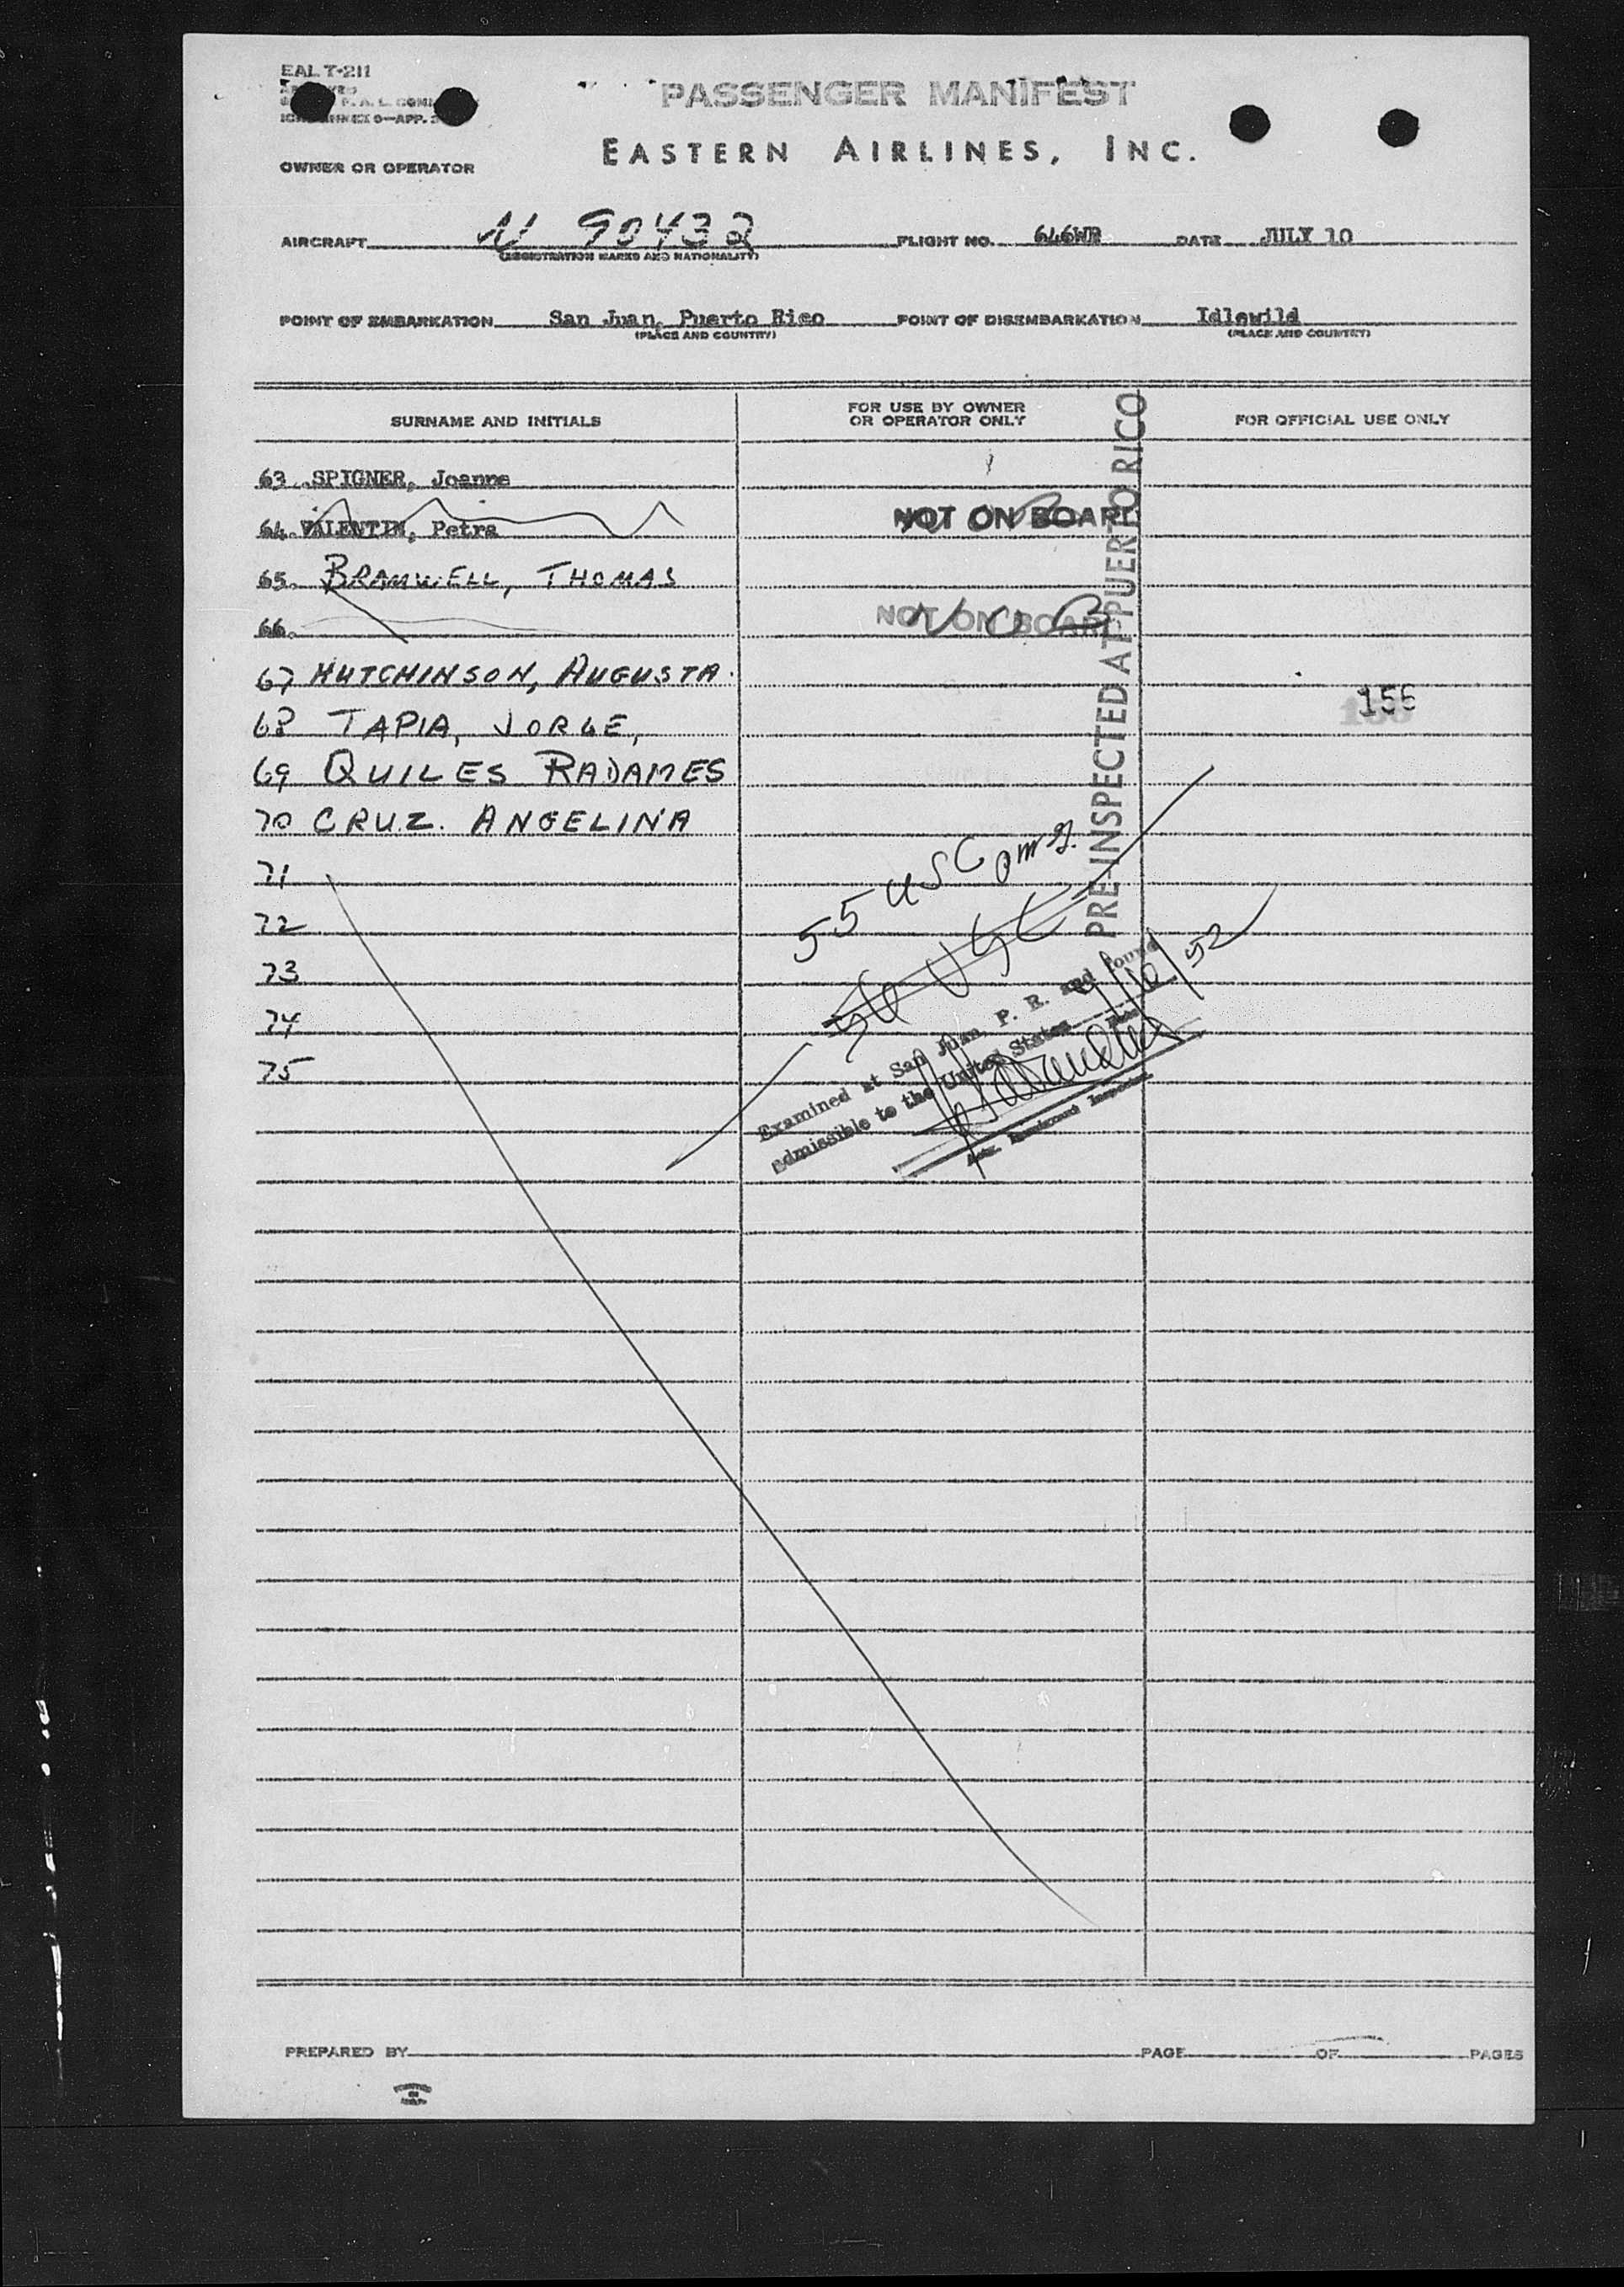 EAL T-211
PASSENGER MANIFEST
EASTERN AIRLINES, INC.
OWNER OR OPERATOR
AIRCRAFT N 90432 FLIGHT NO. 646WR DATE JULY 10
(REGISTRATION MARKS AND NATIONALITY)
POINT OF EMBARKATION San Juan, Puerto Rico POINT OF DISEMBARKATION Idlewild
(PLACE AND COUNTRY) (PLACE AND COUNTRY)
SURNAME AND INITIALS FOR USE BY OWNER OR OPERATOR ONLY FOR OFFICIAL USE ONLY
63. SPIGNER, Joanne
64. VALENTIN, Petra NOT ON BOARD
65. BRAMWELL, THOMAS
66. NOT ON BOARD NOB
67 HUTCHINSON, AUGUSTA.
68 TAPIA, JORGE, 156
69 QUILES RADAMES
70 CRUZ. ANGELINA
71
72
73
74
75
PRE-INSPECTED AT PUERTO RICO
55 USC
Examined at San Juan, P. R. and found
admissible to the United States 7/10/52
Immigrant Inspector
PREPARED BY PAGE OF PAGES